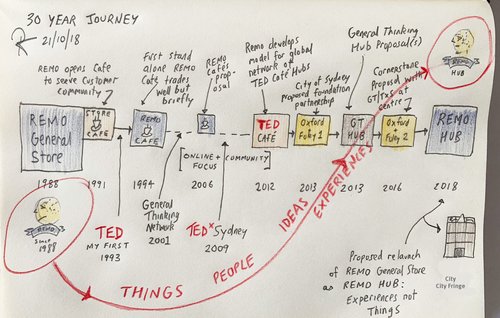 30 YEAR JOURNEY
21/10/18
REMO opens Cafe
to serve Customer
community
First stand
alone REMO
Cafe trades
well but
briefly
REMO
CAFÉS
prop-
osal
Remo develops
model for global
network of
TED Café Hubs
City of Sydney
proposed foundation
partnership
General Thinking
Hub Proposal(s)
Cornerstone
Proposal with
GT/TxS at
centre
REMO
HUB
REMO
General
Store
STORE
CAFE
REMO
CAFE
TED
CAFÉ
Oxford
Foley 1
GT
HUB
Oxford
+
Foley 2
REMO
HUB
[ONLINE + COMMUNITY]
FOCUS
1988
1991
1994
2006
2012
2013
2013
2016
2018
REMO
Since
1988
TED
MY FIRST
1993
General
Thinking
Network
2001
TEDxSydney
2009
THINGS
PEOPLE
IDEAS
EXPERIENCES
Proposed relaunch
of REMO General Store
as REMO HUB:
Experiences not
Things
City
City Fringe